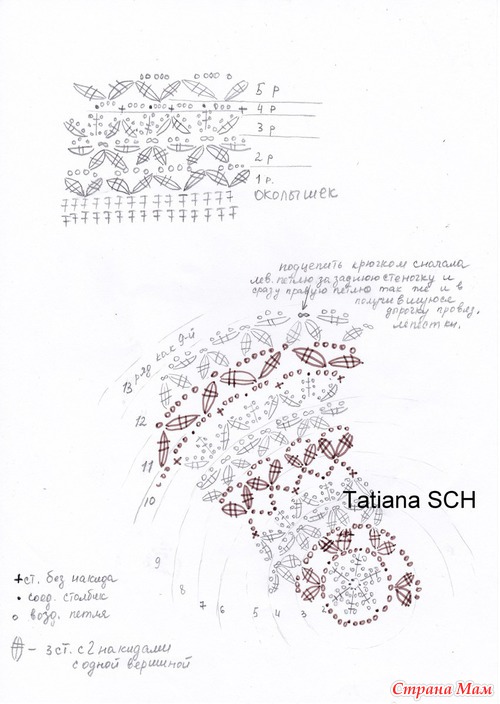 5 р
4 р
3 р
2 р
1 р.
околышек
подцепить крючком сначала
лев. петлю за заднюю стеночку и
сразу правую петлю так же и в
получившуюся
дырочку провяз.
лепестки.
13 ряд как 9-й
12
11
10
9
8
7
6
5
4
3
Tatiana SCH
+ст. без накида
• соед. столбик
о возд. петля
– 3 ст. с 2 накидами
с одной вершиной
Страна Мам